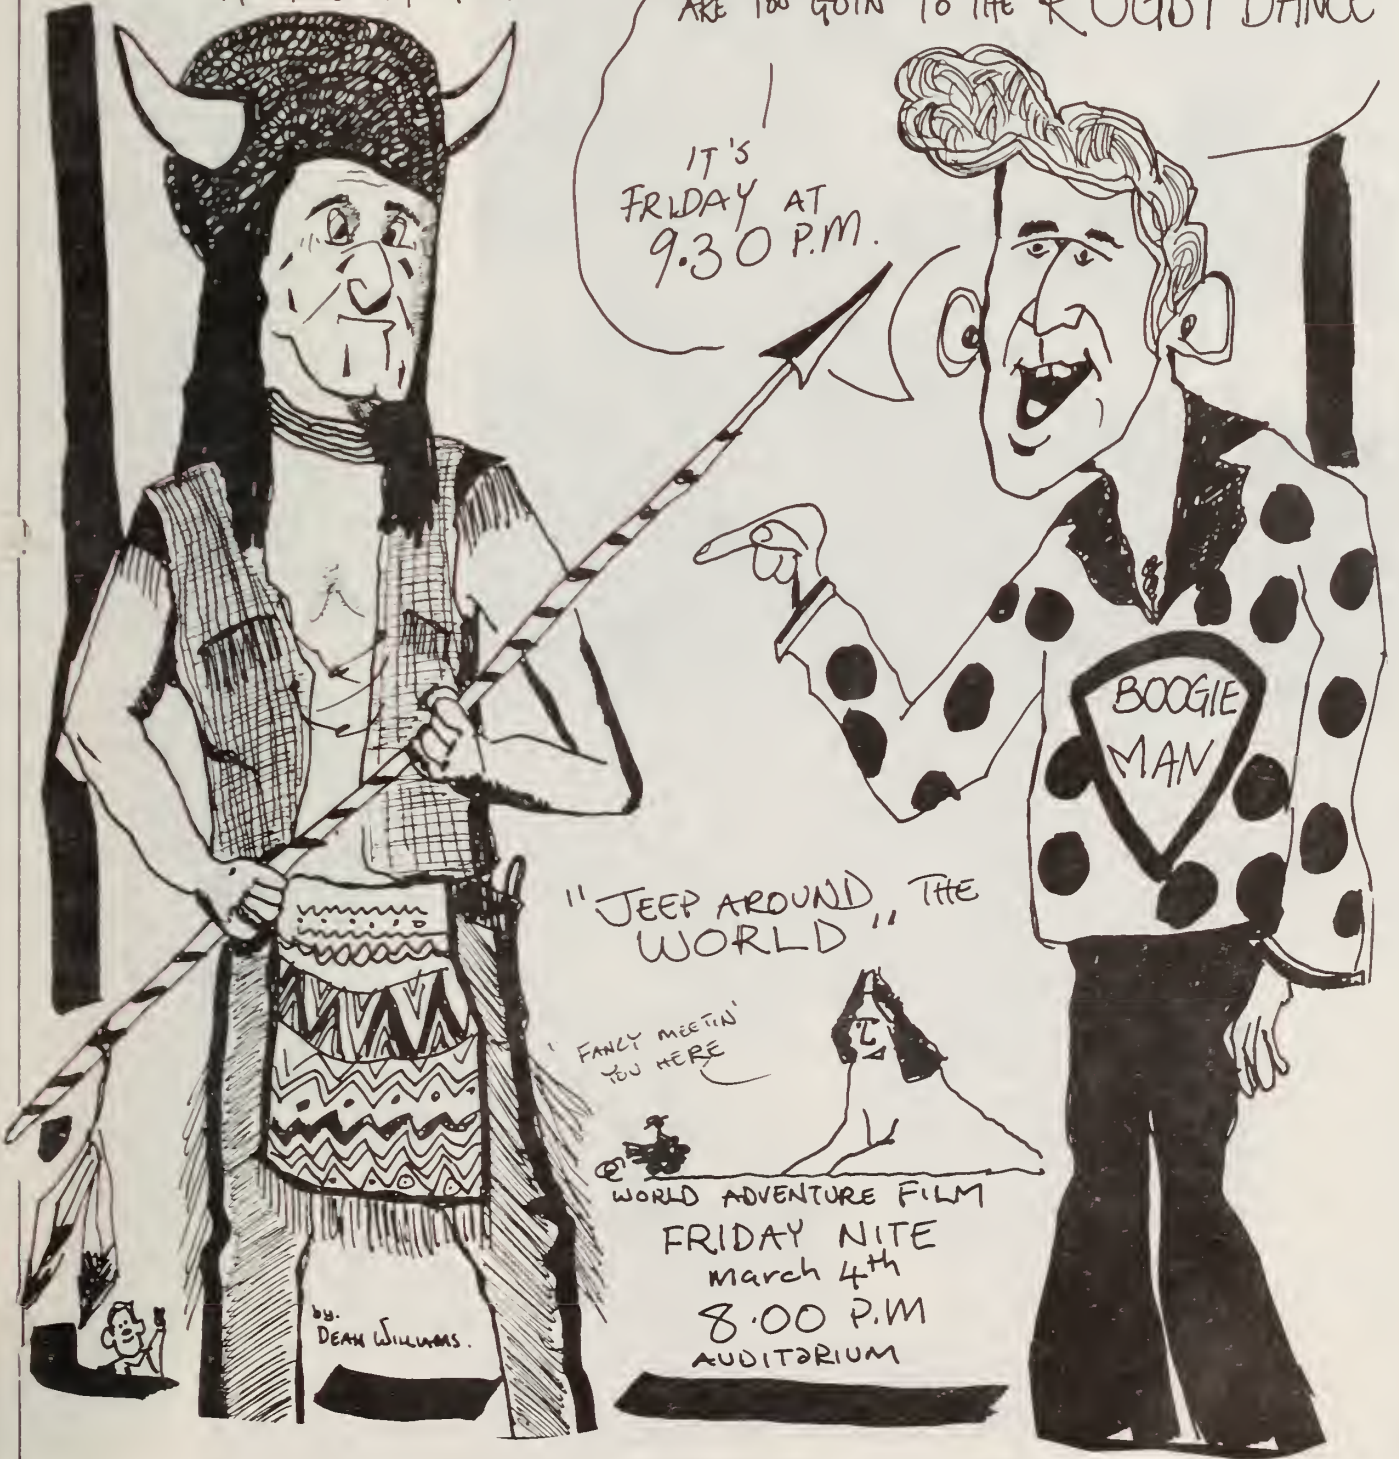 ARE YOU GOIN' TO THE RUGBY DANCE
IT'S
FRIDAY AT
9.30 P.M.
BOOGIE
MAN
"JEEP AROUND THE
WORLD"
'FANCY MEETIN'
YOU HERE
WORLD ADVENTURE FILM
FRIDAY NITE
March 4th
8.00 P.M
AUDITORIUM
by.
DEAN WILLIAMS.